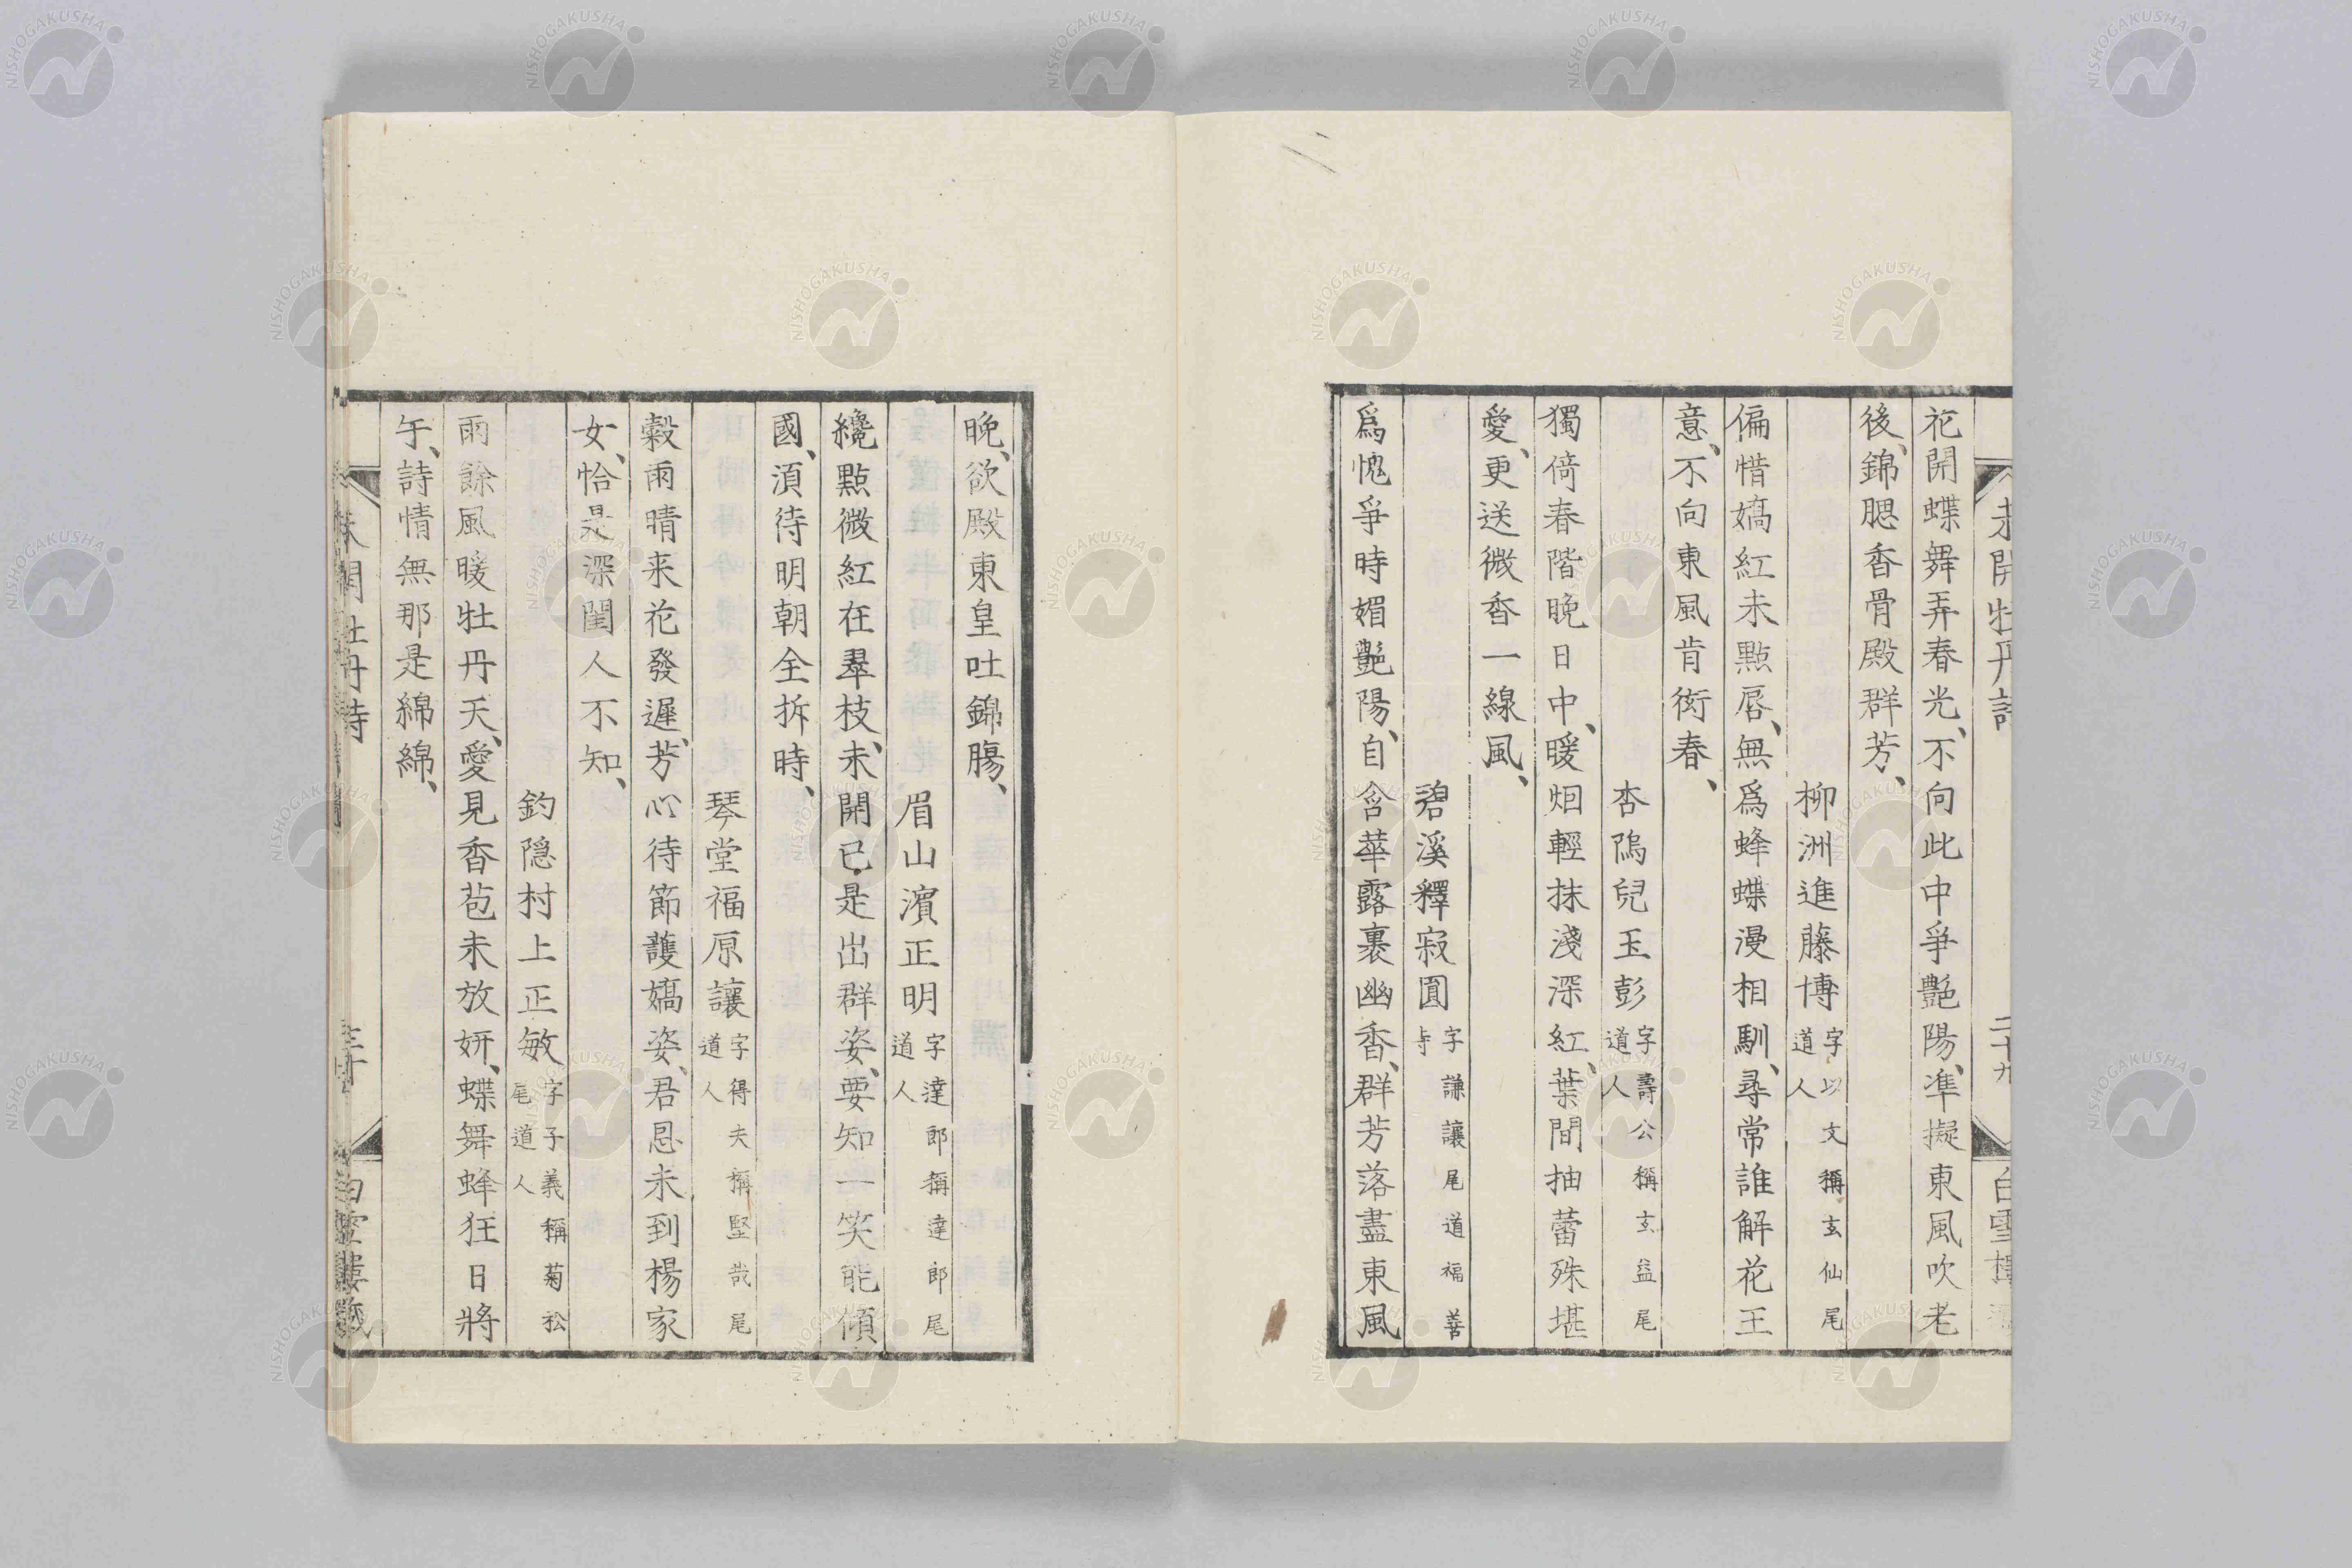 未開牡丹詩 二十九 白雪樓
花開蝶舞弄春光、不向此中爭艷陽、準擬東風吹老
後、錦腮香骨殿群芳、
柳洲進藤博 字以文稱玄仙尾道人
偏惜嬌紅未點唇、無爲蜂蝶漫相馴、尋常誰解花王
意、不向東風肯衒春、
杏隖兒玉彭 字壽公稱玄益尾道人
獨倚春階晚日中、暖烟輕抹淺深紅、葉間抽蕾殊堪
愛、更送微香一線風、
碧溪釋寂圓 字謙讓尾道福善寺
爲愧爭時媚艷陽、自含華露裹幽香、群芳落盡東風
晚、欲殿東皇吐錦腸、
眉山濵正明 字達郎稱達郎尾道人
纔點微紅在翠枝、未開已是出群姿、要知一笑能傾
國、湏待明朝全拆時、
琴堂福原讓 字得夫稱堅哉尾道人
穀雨晴来花發遲、芳心待節護嬌姿、君恩未到楊家
女、恰是深閨人不知、
釣隠村上正敏 字子義稱菊松尾道人
雨餘風暖牡丹天、愛見香苞未放妍、蝶舞蜂狂日將
午、詩情無那是綿綿、
未開牡丹詩 三十 白雪樓藏
NISHOGAKUSHA